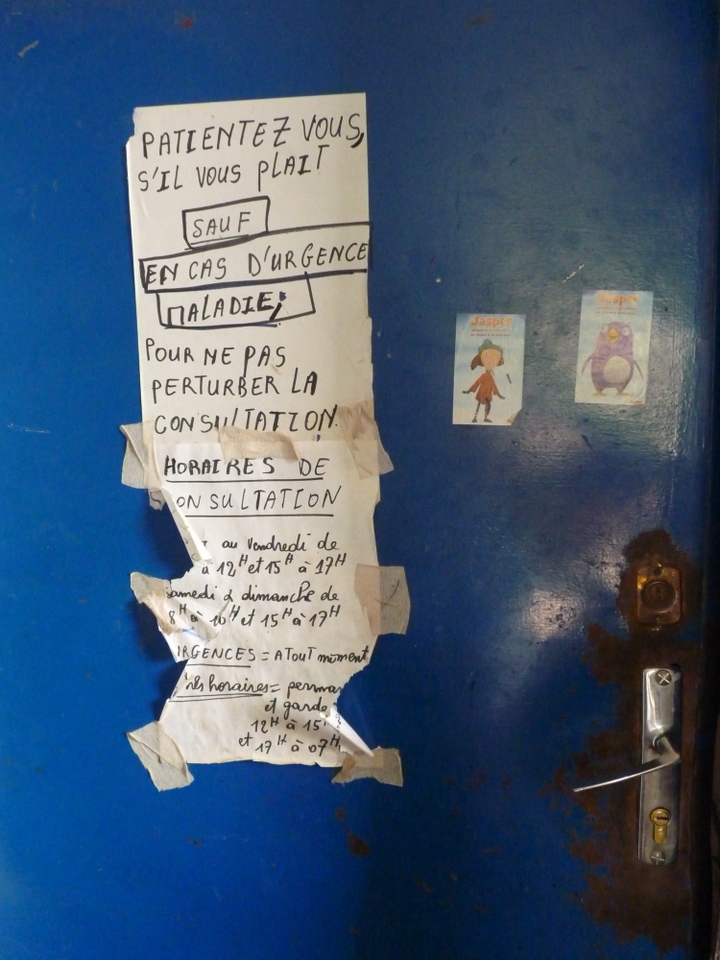 PATIENTEZ VOUS,
S'IL VOUS PLAIT
SAUF
EN CAS D'URGENCE
MALADIE;
POUR NE PAS
PERTURBER LA
CONSULTATION.
HORAIRES DE
ONSULTATION
au Vendredi de
à 12H et 15H à 17H
Samedi & dimanche de
8H à 10H et 15H à 17H
URGENCES = A TOUT moment
res horaires = perman
et garde
12H à 15
et 17H à 07H
Jasper
Jasper